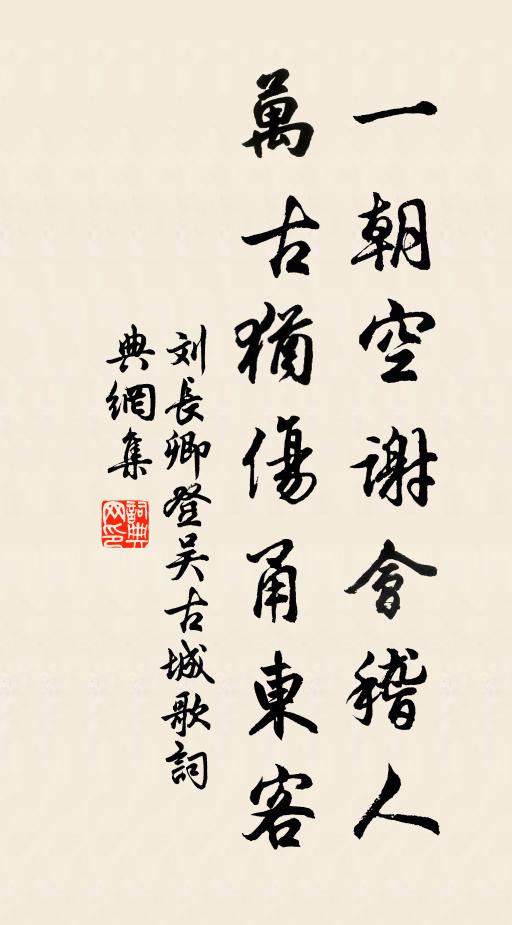 一朝空謝會稽人
萬古猶傷甬東客
刘長卿登吴古城歌詞
典網集
詞典网印